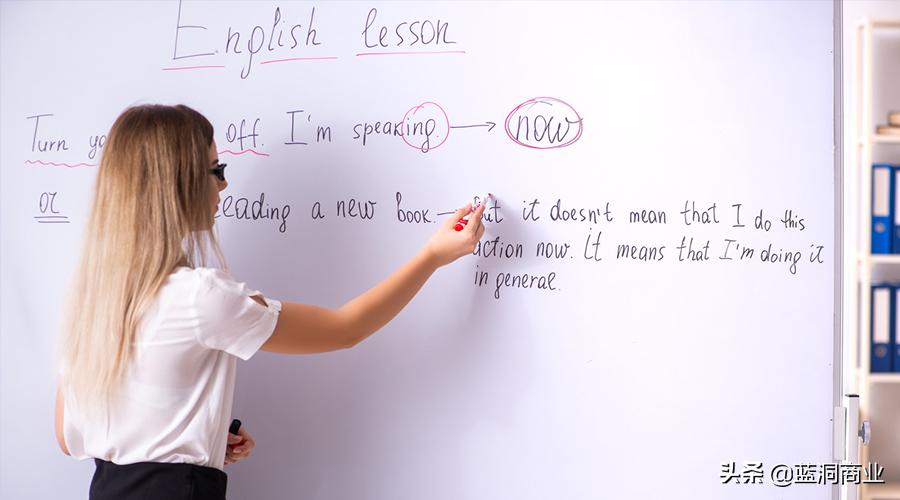 English lesson
Turn off. I'm speaking. → now
or a new book. — it doesn't mean that I do this
action now. It means that I'm doing it
in general.
头条 @蓝洞商业